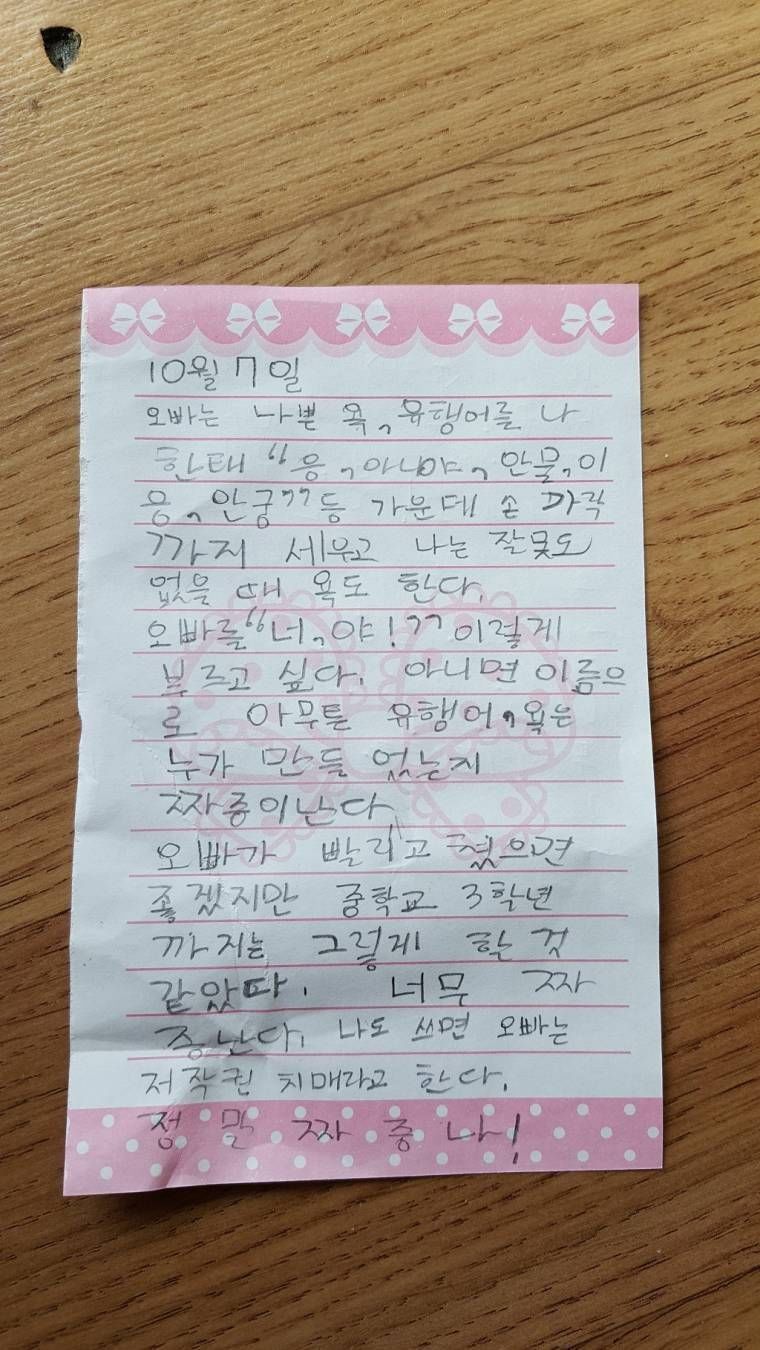 10월 7일
오빠는 나쁜 욕, 유행어를 나
한태 "응, 아니야, 안물, 이
응, 안궁" 등 가운데 손 까락
까지 세우고 나는 잘못도
없을 때 욕도 한다.
오빠를 "너, 야!" 이렇게
부르고 싶다. 아니면 이름으
로 아무튼 유행어, 욕은
누가 만들 었는지
짜증이난다
오빠가 빨리고 쳤으면
좋겠지만 중학교 3학년
까지는 그렇게 할 것
같았다. 너무 짜
증난다. 나도 쓰면 오빠는
저작권 치매라고 한다.
정말 짜증 나!